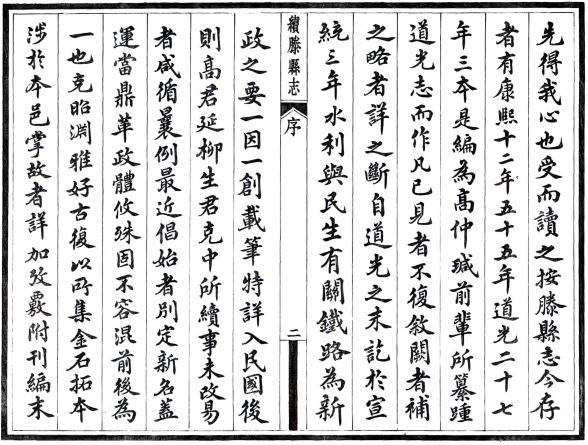 先得我心也受而讀之按滕縣志今存
者有康熙十二年五十五年道光二十七
年三本是編為高仲瑊前輩所纂踵
道光志而作凡已見者不復敘闕者補
之略者詳之斷自道光之末訖於宣
統三年水利與民生有關鐵路為新
續滕縣志
序
二
政之要一因一創載筆特詳入民國後
則高君延柳生君克中所續事未改易
者咸循曩例最近倡始者別定新名蓋
運當鼎革政體攸殊固不容混前後為
一也克昭淵雅好古復以所集金石拓本
涉於本邑掌故者詳加攷覈附刊編末